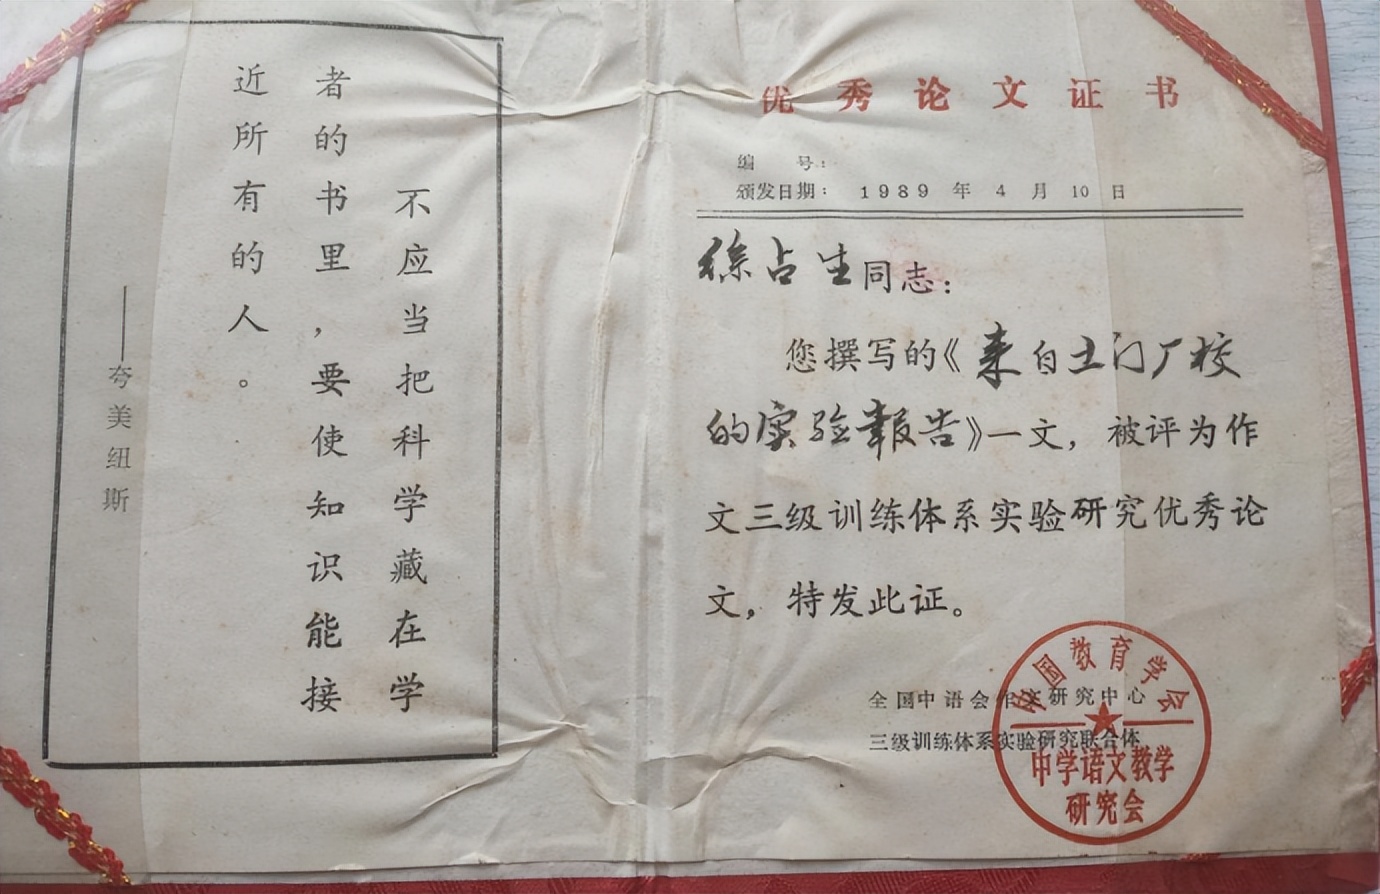 不应当把科学藏在学
者的书里，要使知识能接
近所有的人。
——夸美纽斯
优秀论文证书
编　号：
颁发日期： 1989 年 4 月 10 日
徐占生同志：
您撰写的《来自土门厂校
的实验報告》一文，被评为作
文三级训练体系实验研究优秀论
文，特发此证。
全国中语会作文研究中心
三级训练体系实验研究联合体
中国教育学会
中学语文教学
研究会